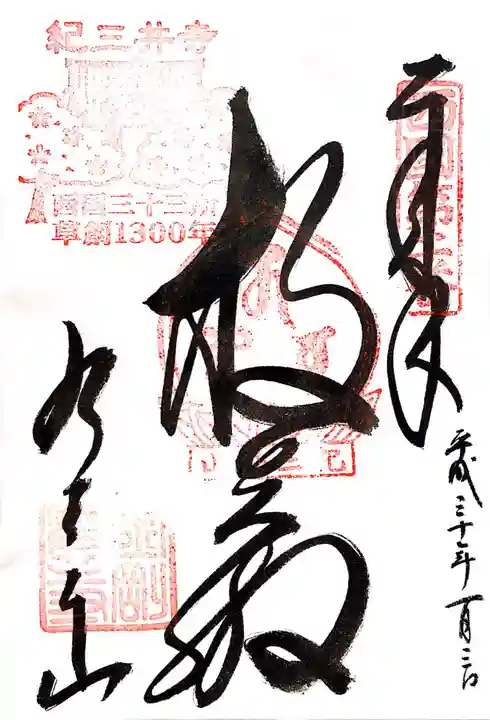 奉拝
西国第二番
平成三十年
救世殿
紀三井寺
西国三十三所
草創1300年
紀三井山
金剛宝寺